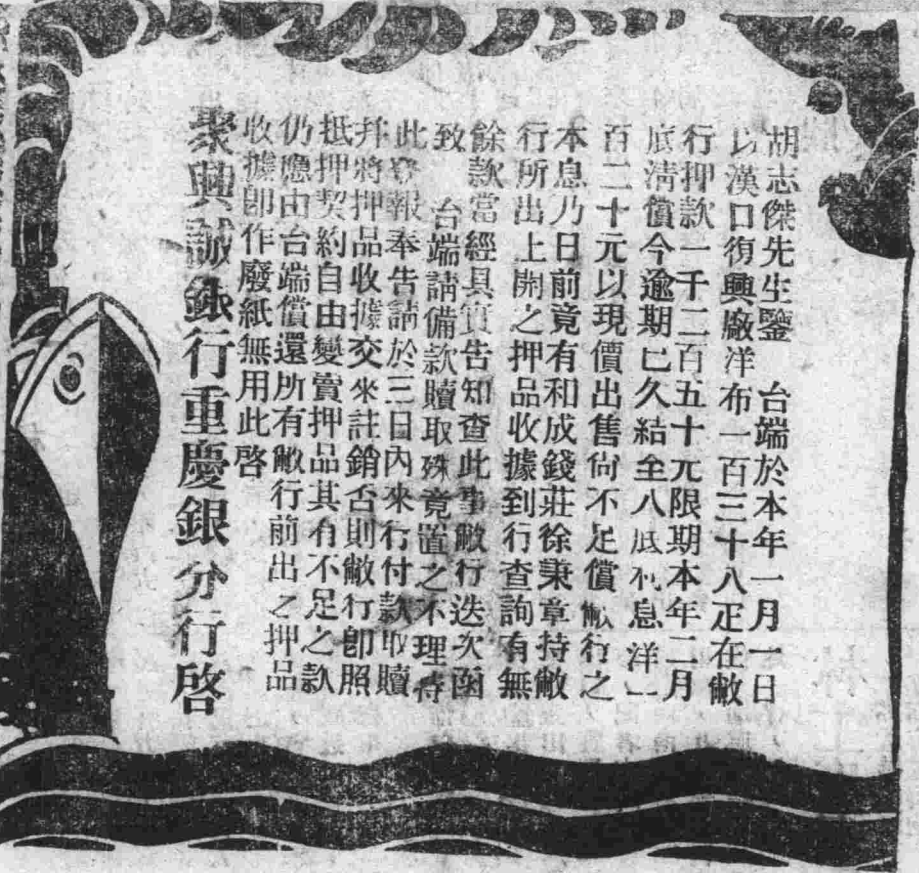 胡志傑先生鑒　台端於本年一月一日
以漢口復興廠洋布一百三十八疋在敝
行押款一千二百五十元限期本年二月
底淸償今逾期已久結至八底利息洋一
百二十元以現價出售尙不足償敝行之
本息乃日前竟有和成錢莊徐秉章持敝
行所出上開之押品收據到行查詢有無
餘款當經具實吿知查此事敝行迭次函
致　台端請備款贖取殊竟置之不理特
此登報奉吿請於三日內來行付款取贖
幷將押品收據交來註銷否則敝行卽照
抵押契約自由變賣押品其有不足之款
仍應由台端償還所有敝行前出之押品
收據卽作廢紙無用此啓
聚興誠銀行重慶銀分行啓